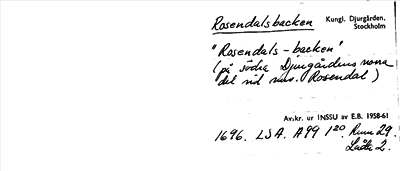 Rosendalsbacken Kungl. Djurgården,
Stockholm
"Rosendals-backen"
(på södra Djurgårdens norra
del vid nuv. Rosendal)
Avskr. ur INSSU av E.B. 1958-61
1696. LSA. A99 1:20. Rum 29.
Låda 2.